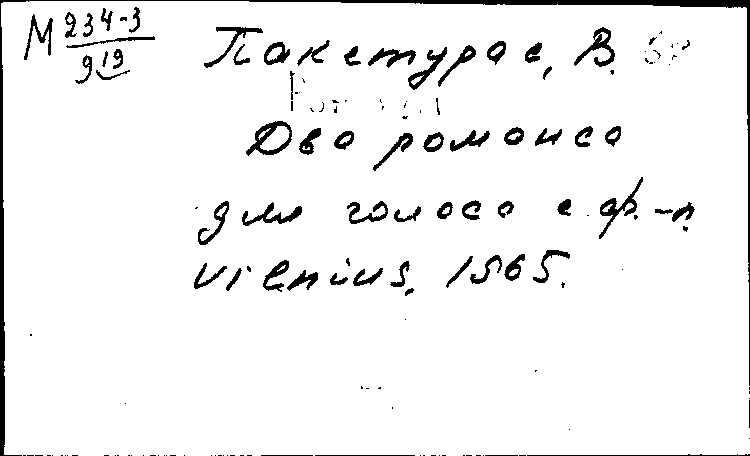 М 234-3
919
Пакстурас, В.
Два романса
для голоса с ф.-п.
Vilnius, 1965.